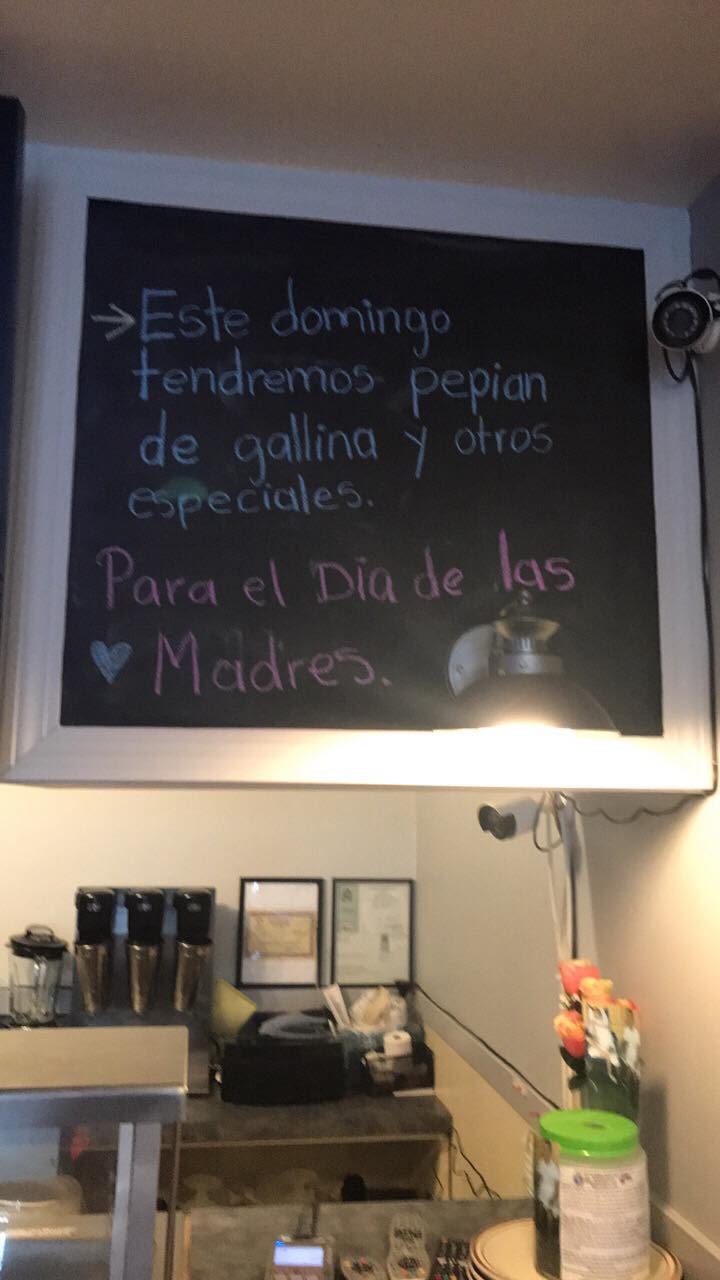 →Este domingo
tendremos pepian
de gallina y otros
especiales.
Para el Dia de las
♥ Madres.